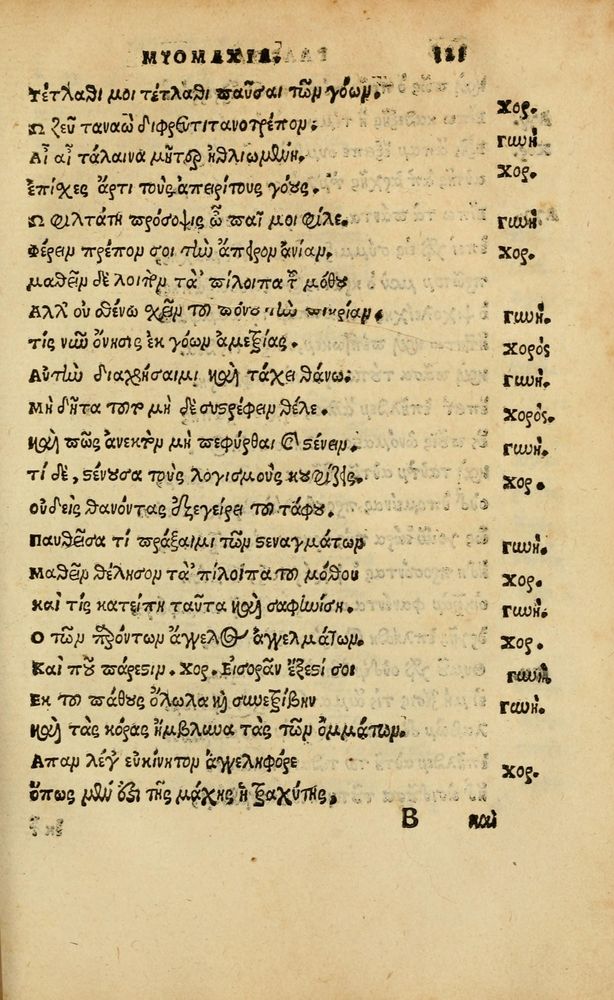 ΜΥΟΜΑΧΙΑ.
Τέτλαθί μοι τέτλαθι παῦσαι τῶν γόων.
Ω ζεῦ ταναὼ διφρετιτανοτρέπον: Χορ.
Αἶ αἶ τάλαινα μῆτερ ἠθλιωμένη. Γυνή.
Επίχες ἄρτι τοὺς ἀπειρίτους γόους. Χορ.
Ω φιλτάτη πρόσοψις ὦ παῖ μοι φίλε. Γυνή.
Φέρειν πρέπον σοι τὴν ἄπειρον ἀνίαν. Χορ.
μαθεῖν δὲ λοιπὸν τἀ'πίλοιπα τοῦ μόθου
Αλλ' οὐ σθένω φέρειν τοῦ πόνου τὴν πικρίαν. Γυνή.
τίς νῦν ὄνησις ἐκ γόων ἀμετρίας. Χορός
Αὐτὴν διαχρήσαιμι καὶ τάχει θάνω: Γυνή.
Μὴ δῆτα τοῦτο μὴ δὲ συστρέφειν θέλε. Χορός.
καὶ πῶς ἀνεκτὸν μὴ πεφύρθαι καὶ στένειν. Γυνή.
τί δὲ, στένουσα τοὺς λογισμοὺς κουφίζεις. Χορ.
οὐδεὶς θανόντας ἐξεγείρει τοῦ τάφου.
Παυθεῖσα τί πράξαιμι τῶν στεναγμάτων Γυνή.
Μαθεῖν θέλησον τἀ'πίλοιπα τοῦ μόθου Χορ.
καὶ τίς κατείπῃ ταῦτα καὶ σαφηνίσῃ. Γυνή.
Ο τῶν παρόντων ἄγγελος ἀγγελμάτων. Χορ.
Καὶ ποῦ πάρεστιν. Χορ. Εἰσορᾶν ἔξεστί σοι Γυνή.
Εκ τοῦ πάθους ὄλωλα καὶ συνετρίβην Γυνή.
καὶ τὰς κόρας ἤμβλυνα τὰς τῶν ὀμμάτων.
Απαν λέγε εὐκίνητον ἀγγεληφόρε Χορ.
ὅπως μὲν ἔχει τῆς μάχης ἡ τραχύτης.
B καὶ